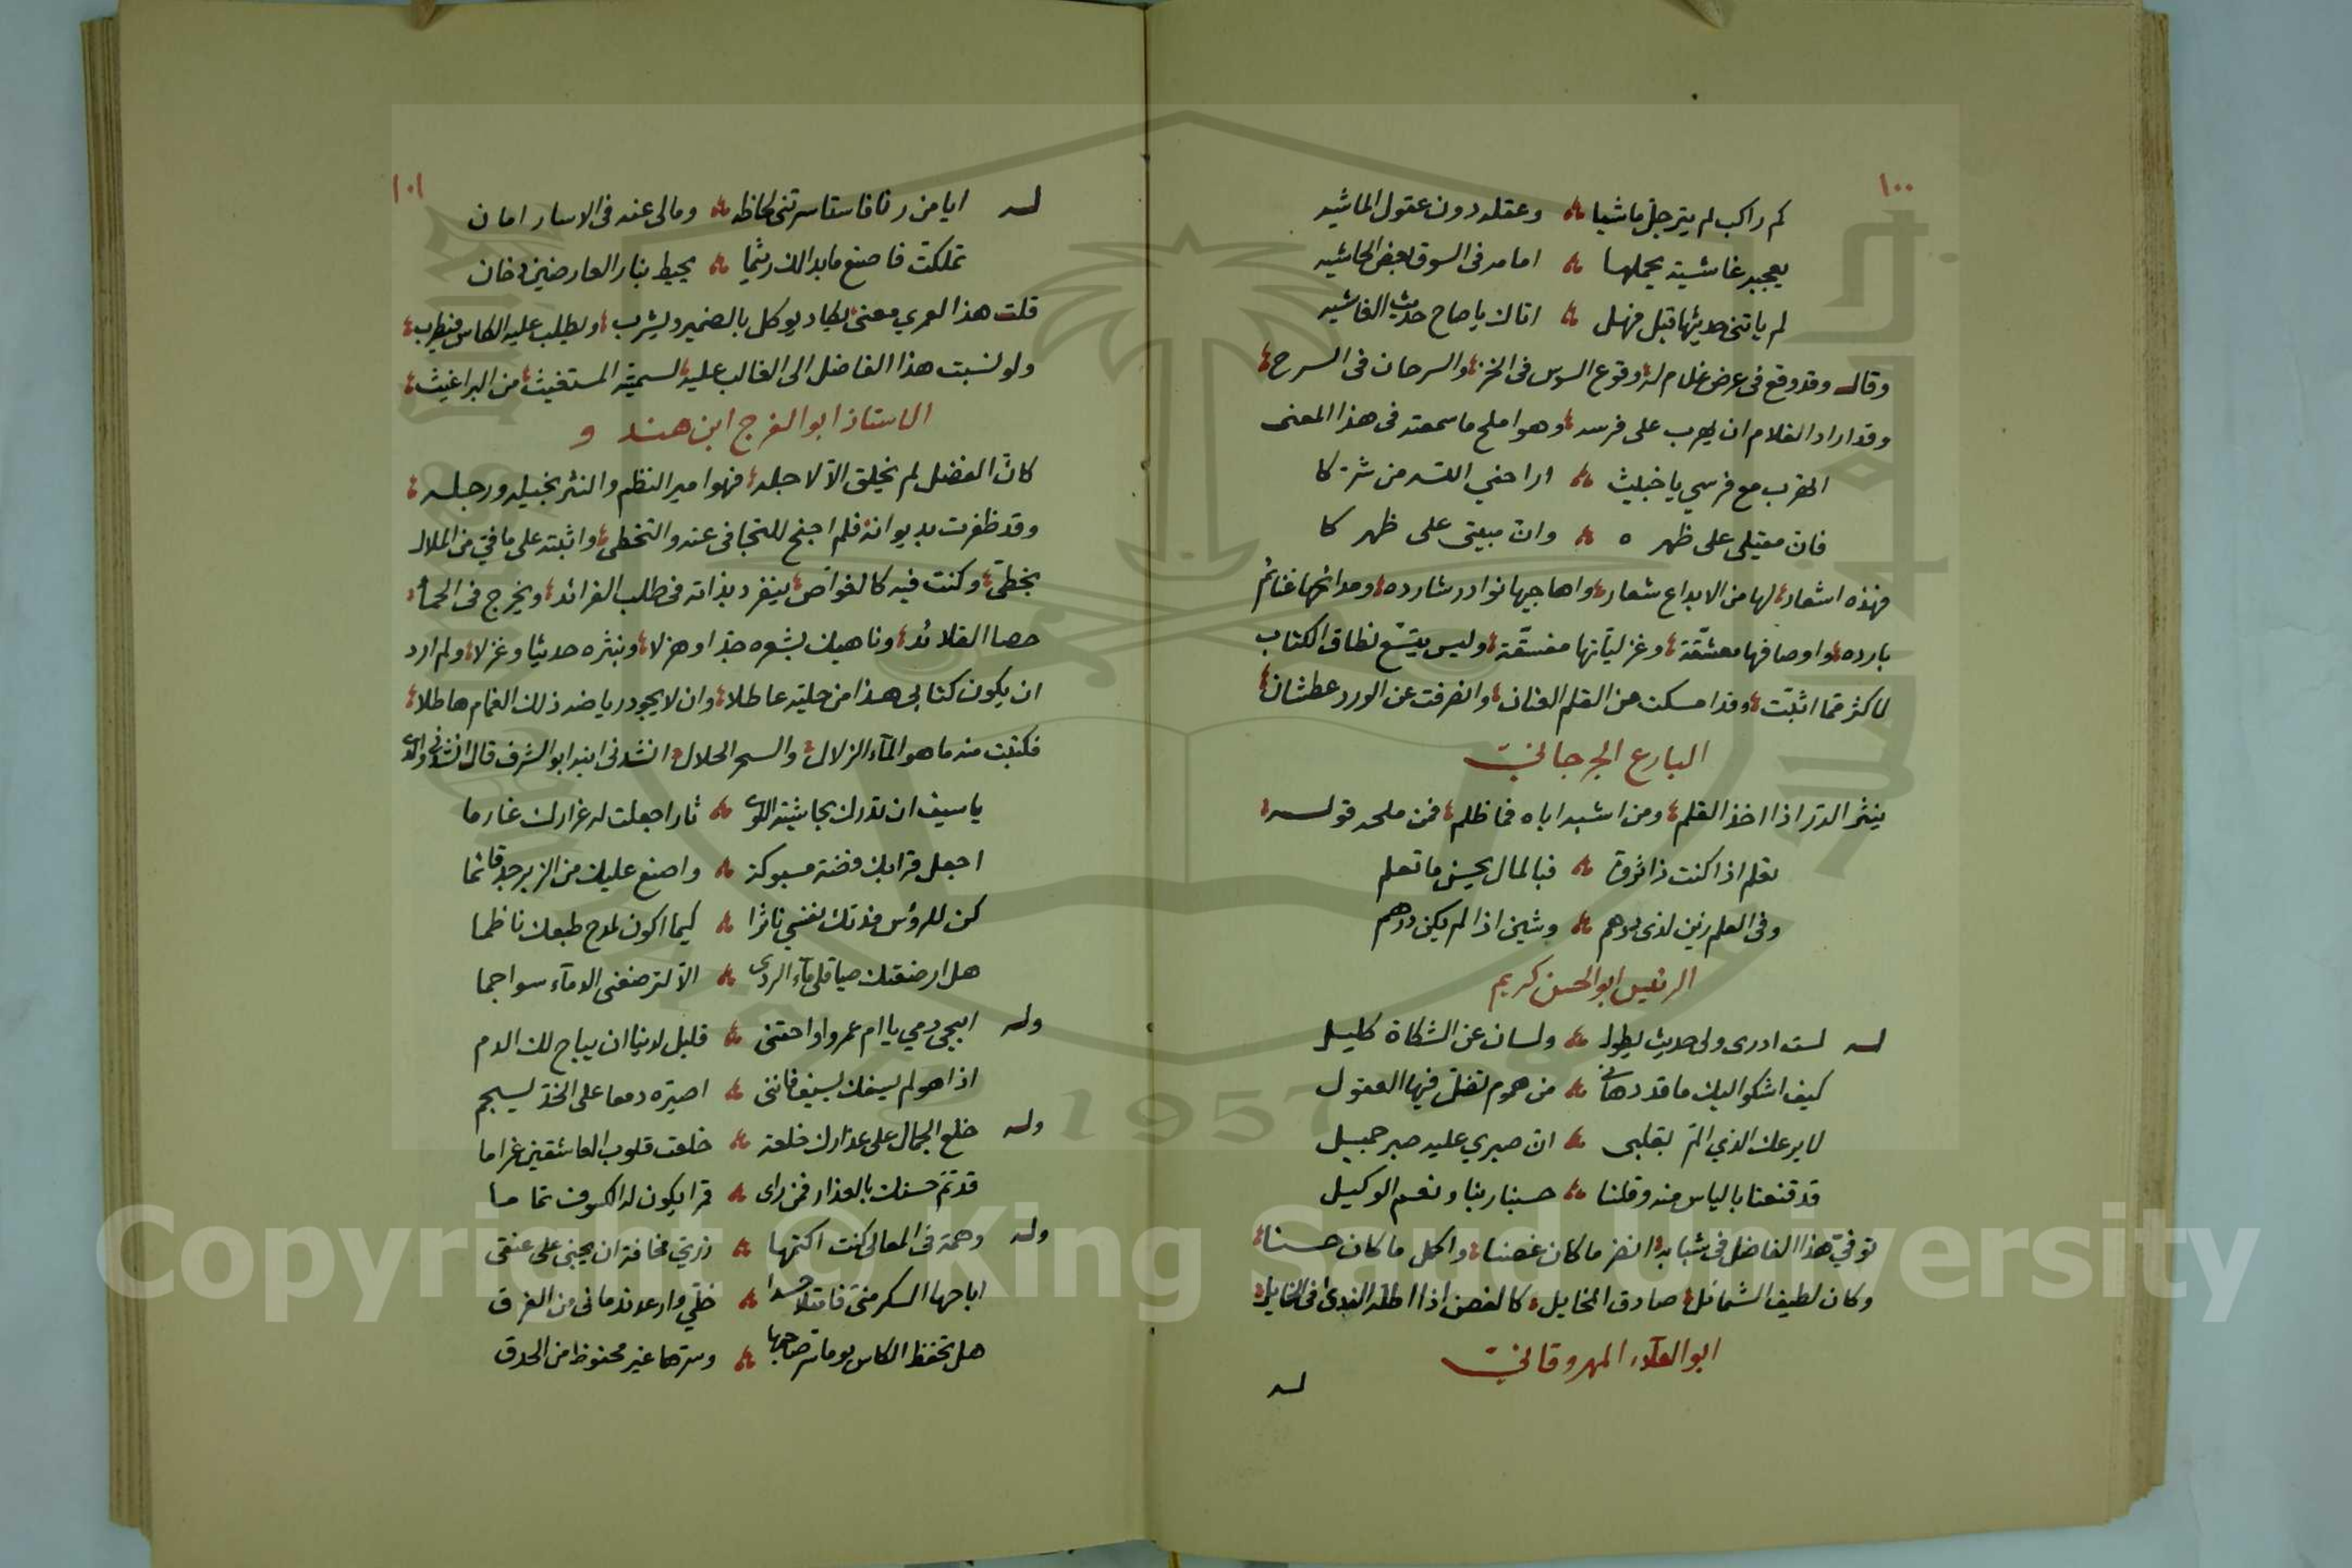 ١٠٠
كم راكب لم يترجل ماشيا وعقله دون عقول الماشيه
يعجبه غاشية يحملها امامه فى السوق بعض الحاشيه
لم ياتنى حديثها قبل فهل اتاك ياصاح حديث الغاشيه
وقال وقد وقع فى عرض غلام له وقوع السوس فى الخز والسرحان فى السرح
وقد اراد الغلام ان يهرب على فرسه وهو املح ماسمعته فى هذا المعنى
اتهرب مع فرسي ياخبيث اراحني الله من شركا
فان مقيلى على ظهره وان مبيتى على ظهركا
فهذه اشعار لها من الابداع شعار واهاجيها نوادر شارده ومدائحها غنائم
بارده واوصافها معشقة وغزلياتها مفسقة وليس يتسع نطاق الكتاب
لاكثر مما اثبت وقد امسكت من القلم العنان وانصرفت عن الورد عطشان
البارع الجرجاني
ينثر الدر اذا اخذ القلم ومن اشبه اباه فما ظلم فمن ملحه قوله
تعلم اذا كنت ذا ثروة فبالمال يحسن ما تعلم
وفى العلم زين لذى درهم وشين اذا لم يكن درهم
الرئيس ابو الحسن كريم
له لست ادرى ولى حديث يطول ولسان عن الشكاة كليل
كيف اشكو اليك ما قد دهانى من هموم تضل فيها العقول
لا يرعك الذي الم بقلبى ان صبري عليه صبر جميل
قد قنعنا بالياس منه وقلنا حسبنا ربنا ونعم الوكيل
توفي هذا الفاضل فى شبابه انضر ما كان غصنا واكمل ما كان حسنا
وكان لطيف الشمائل صادق المخايل كالغصن اذا اطله الندى فى الخمايل
ابو العلاء المهروقاني
له
١٠١
له ايا من رنا فاستاسرتنى لحاظه ومالى عنه فى الاسار امان
تملكت فاصنع مابدالك ريثما يحيط بنار العارضين دخان
قلت هذا لعمري معنى يكاد يوكل بالضمير ويشرب ويطلب عليه الكاس فيطرب
ولو نسبت هذا الفاضل الى الغالب عليه لسميته المستغيث من البراغيث
الاستاذ ابو الفرج ابن هندو
كان الفضل لم يخلق الا لاجله فهو امير النظم والنثر بخيله ورجله
وقد ظفرت بديوانه فلم اجنح للتجافى عنه والتخطى واثبته على مافي من الملال
بخطي وكنت فيه كالغواص ينفرد بذاته فى طلب الفرائد ويخرج فى الحمأ
حصا القلائد وناهيك بشعره جدا وهزلا وبنثره حديثا وغزلا ولم ارد
ان يكون كتابى هذا من حليته عاطلا وان لا يجود رياضه ذلك الغمام هاطلا
فكتبت منه ما هو الماء الزلال والسحر الحلال انشدنى ابنه ابو الشرف قال انشدنى والدى
ياسيف ان تدرك بحاشية اللوى ثارا جعلت له غرارك غارما
اجعل قرابك فضة مسبوكة واصنع عليك من الزبرجد قائما
كن للرؤس فدتك نفسي ناثرا كيما اكون لمدح طبعك ناظما
هل ارضعتك صياقلى ماء الردى الا لترضعنى الدماء سواجما
وله ابيحى دمي ياام عمرو اواحقنى فلبل لدنيا ان يباح لك الدم
اذا هو لم يسفك بسيف فاننى اصيره دمعا على الخد يسجم
وله خلع الجمال على عذارك خلعة خلعت قلوب العاشقين غراما
قد تم حسنك بالعذار فمن راى قمرا يكون له الكسوف تماما
وله وهمة فى المعالى كنت اكتمها مخافة ان يجنى على عنقى
اباحها السكر منى فامتلا حسدا خلي وارعد ندمانى من الفرق
هل تحفظ الكاس يوما سر صاحبها وسرها غير محفوظ من الحدق
1957
Copyright © King Saud University